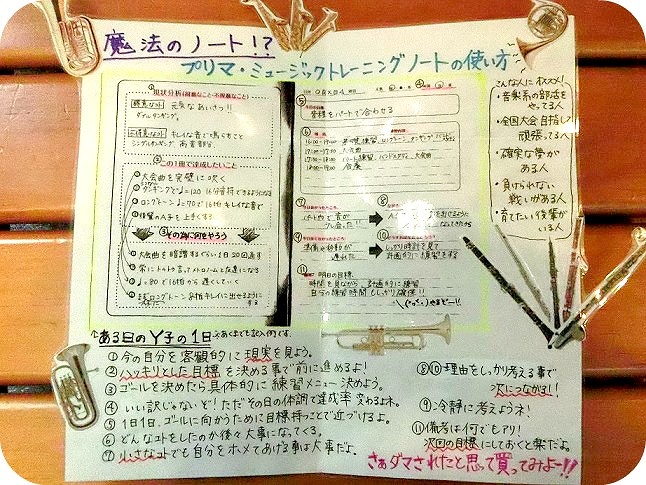 魔法のノート!?
プリマ・ミュージックトレーニングノートの使い方
こんな人にオススメ!
・音楽系の部活を
やってる人
・全国大会目指して
頑張ってる人
・確実な夢が
ある人
・負けられない
戦いがある人
・育てたい後輩が
いる人
①現状分析
得意なコト 元気なあいさつ!!
ダブルタンギング。
キレイな音で鳴らすこと
シングルタンギング
②この1冊で達成したいこと
①大会曲を完璧に吹く
②タンギングで♩=120 16分音符できるようになる
③ロングトーン ♩=70で16拍キレイな音で
④後輩のA子を上手くする
③その為に何をやろう
①大会曲を暗譜するぐらい1日20回通す
♩=80で16拍から速くしていく
⑤
皆様をパートで合わせる
⑥
16:00~17:00
17:00~17:30 大会曲
18:00~19:00 合奏
⑦
⑧
⑨
準備や移動が
遅れた
⑩
しっかり時計を見て
計画的に練習をする
⑪ 明日の目標
時間を見ながら、計画的に練習
自分の練習時間もしっかり確保!!
↑ある日のY子の1日 ※あくまでも記入例です。
①今の自分を客観的に現実を見よう。
②ハッキリとした目標を決める事で前に進めるよ!
③ゴールを決めたら具体的に練習メニュー決めよう。
④いい訳じゃないぞ!ただその日の体調で達成率変わるよネ。
⑤1日1日、ゴールに向かうために目標持つことで近づけるよ。
⑥どんなコトをしたのか後々大事になってくる。
⑦小さなコトでも自分をホメてあげる事は大事だよ。
⑧⑩理由をしっかり考える事で
次につながる!!
⑨冷静に考えようネ!
⑪備考は何でもアリ!
次回の目標にしておくと楽だよ。
さぁダマされたと思って買ってみよー!!